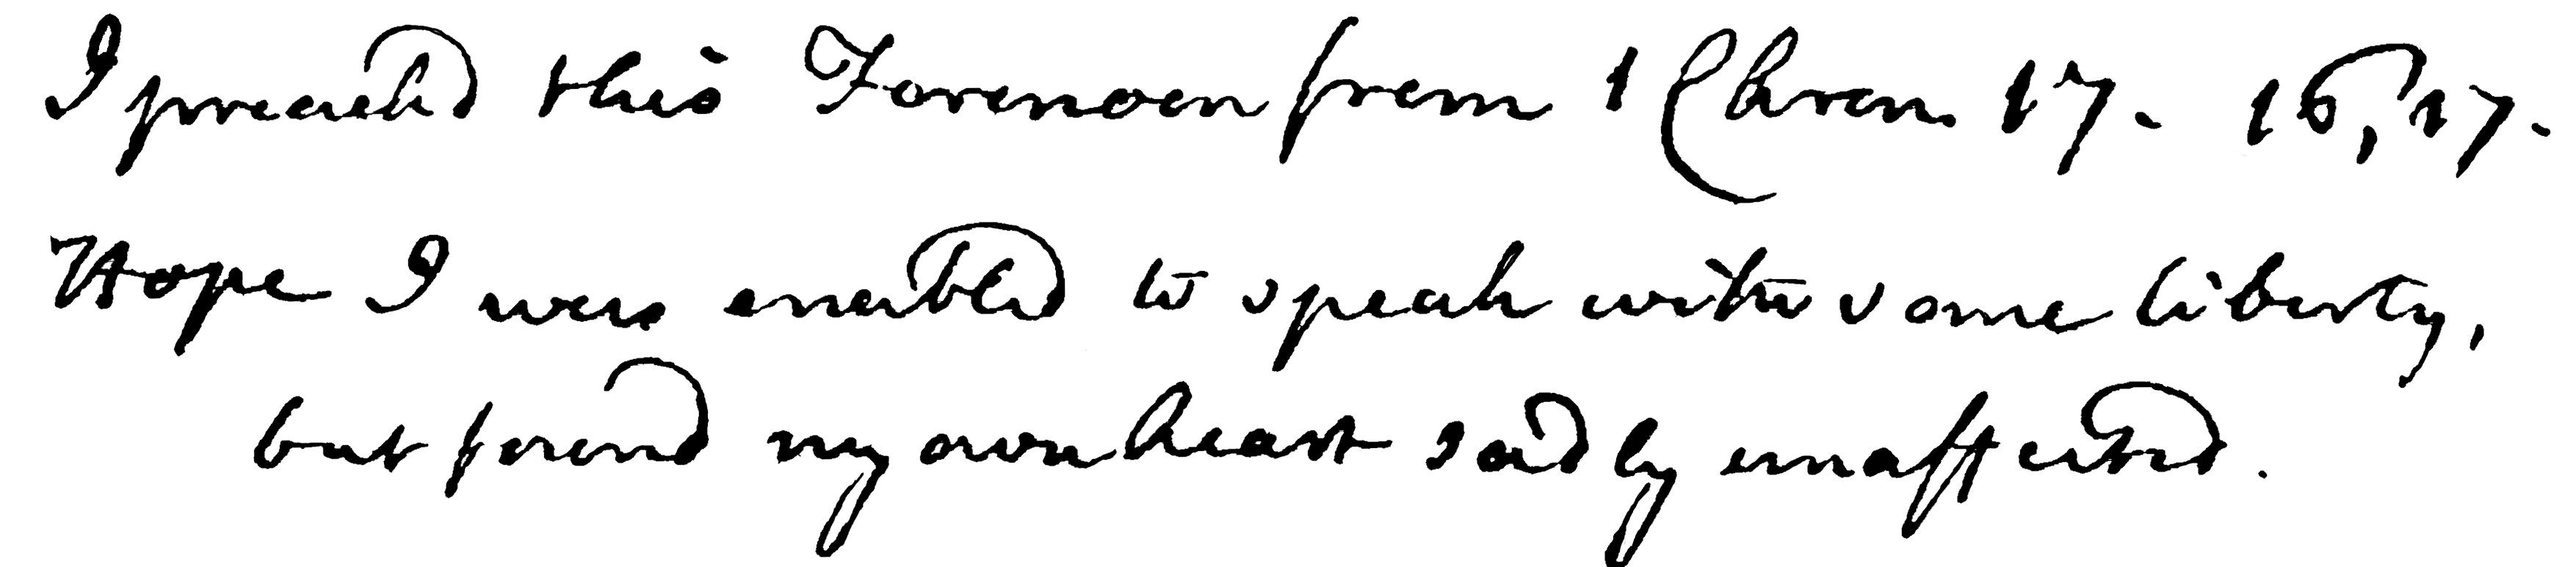 I preached this Forenoon from 1 Chron. 17. 16, 17.
Hope I was enabled to speak with some liberty,
but found my own heart sadly unaffected.